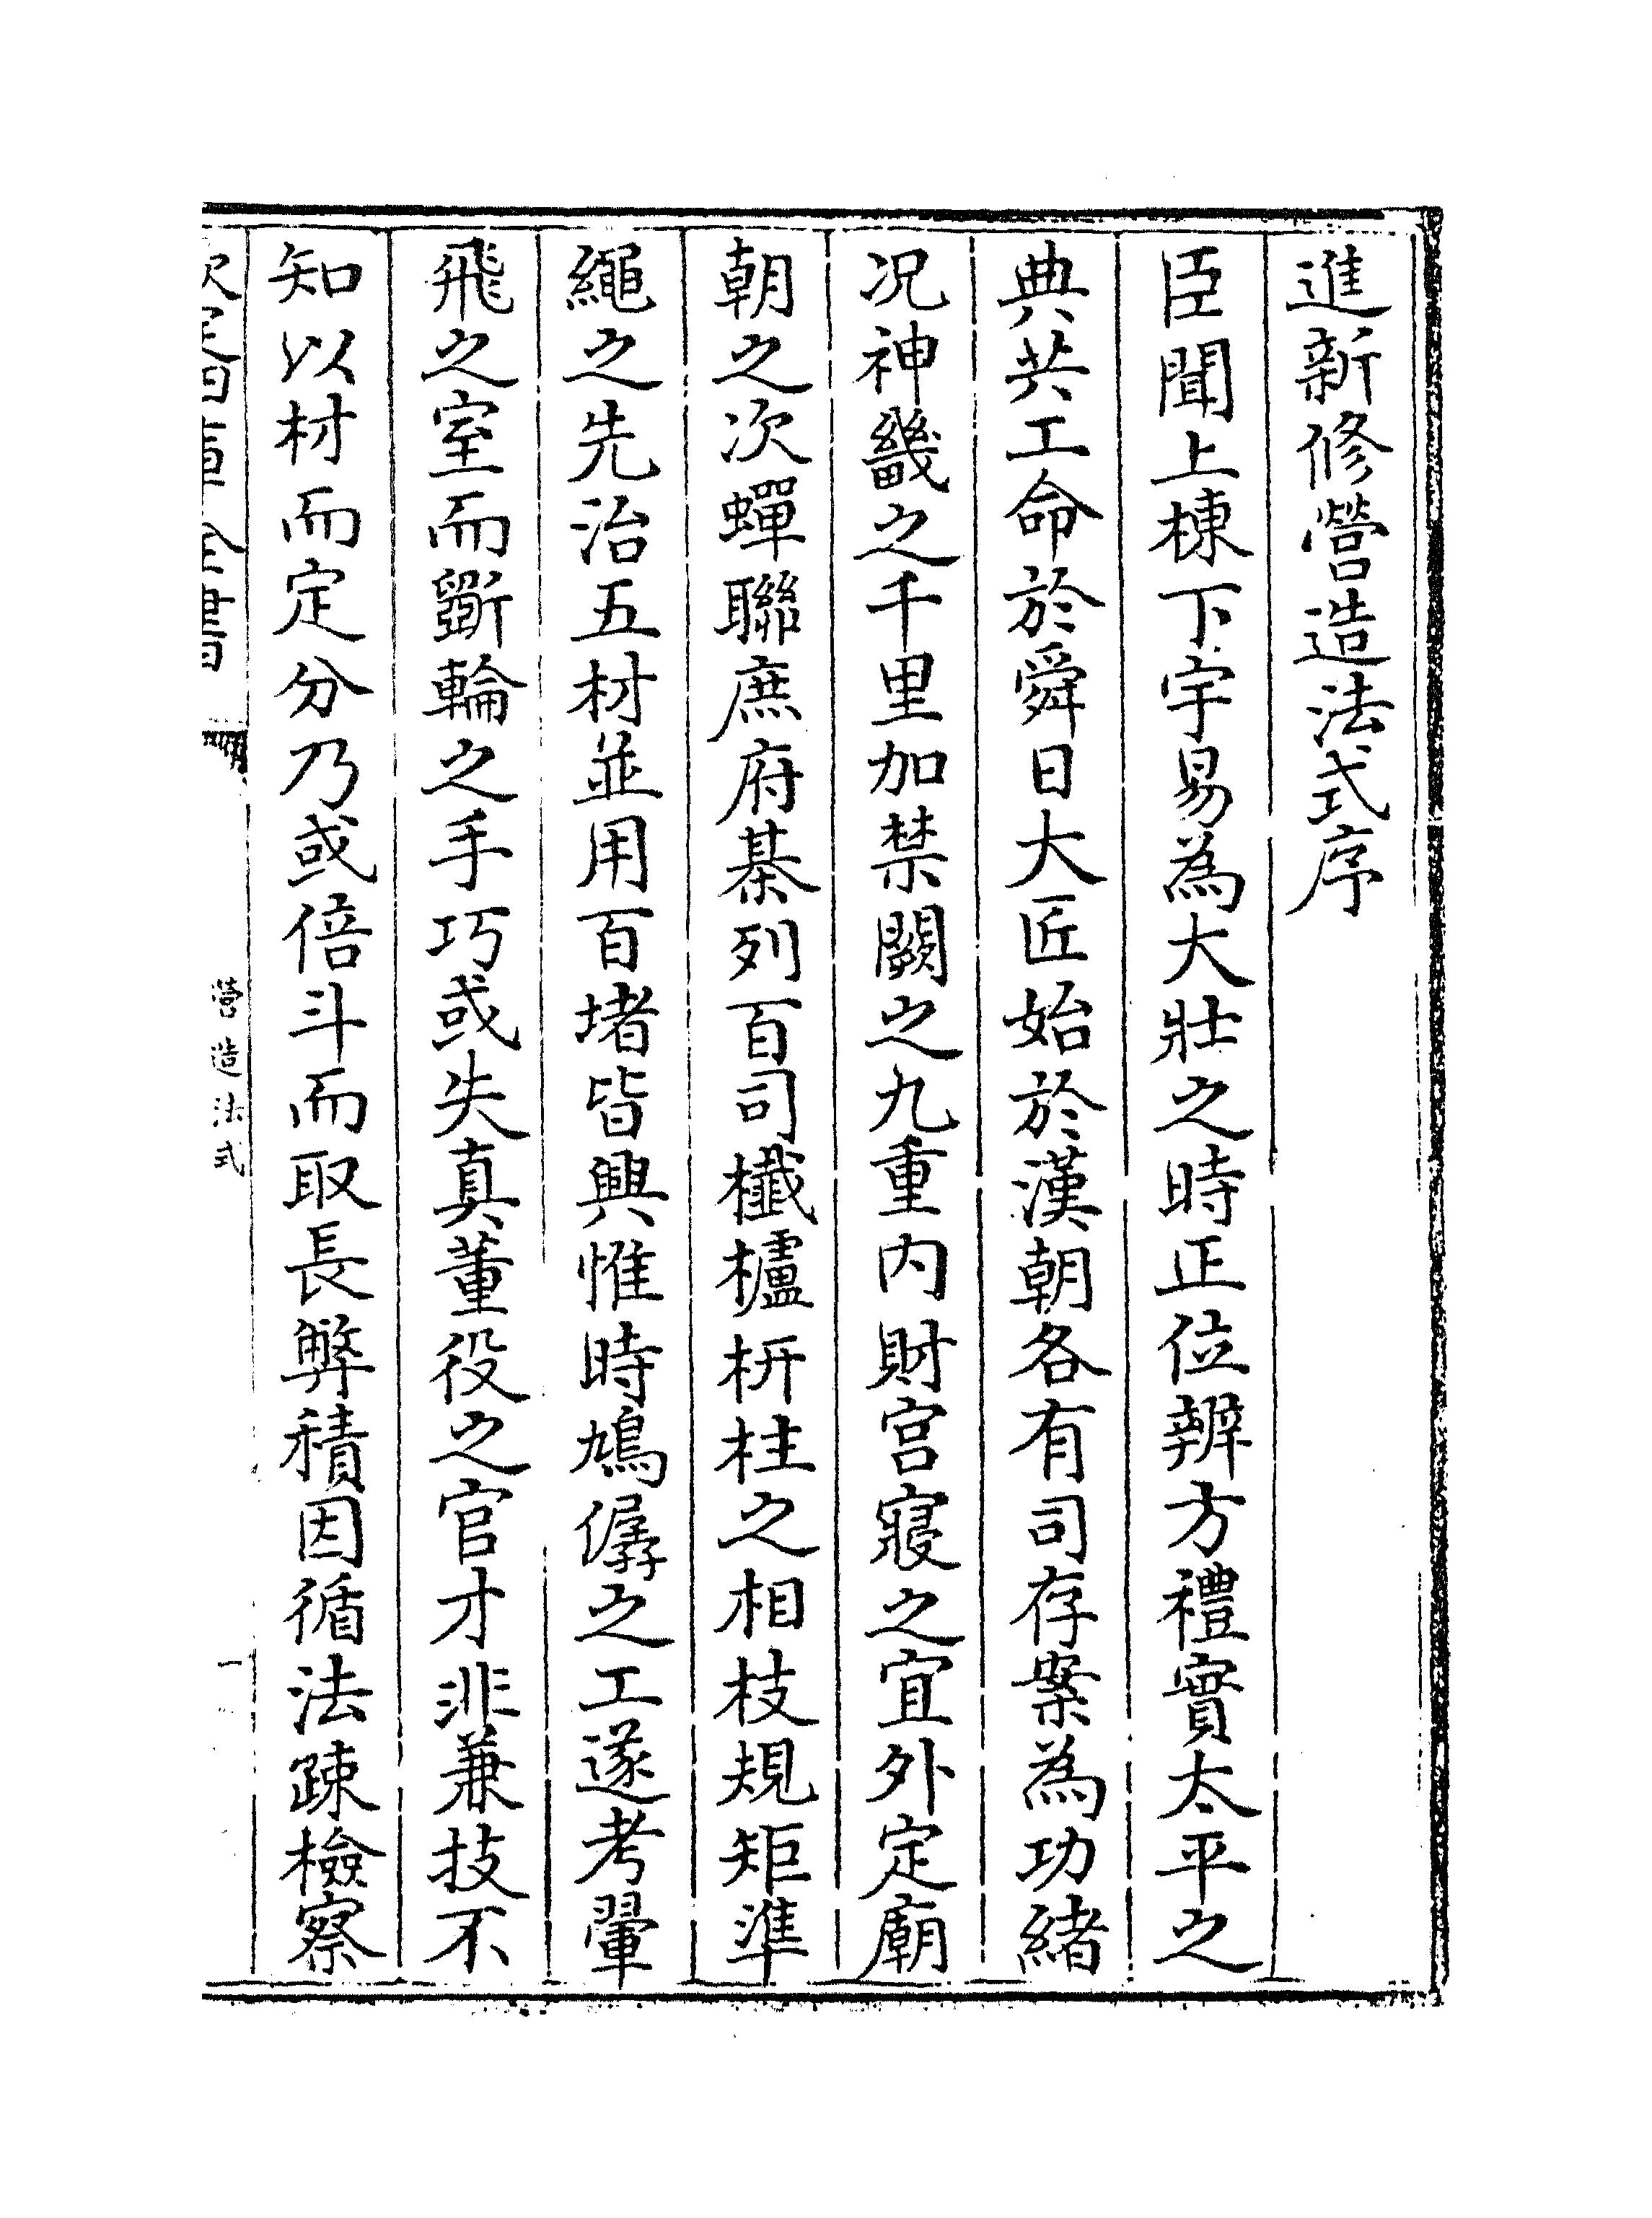 進新修營造法式序
臣聞上棟下宇易為大壯之時正位辨方禮實太平之
典共工命於舜日大匠始於漢朝各有司存案為功緒
况神畿之千里加禁闕之九重内財宫寢之宜外定廟
朝之次蟬聯庶府棊列百司櫼櫨枅柱之相枝規矩準
繩之先治五材並用百堵皆興惟時鳩僝之工遂考翬
飛之室而斵輪之手巧或失真董役之官才非兼技不
知以材而定分乃或倍斗而取長弊積因循法疎檢察
欽定四庫全書
營造法式
一